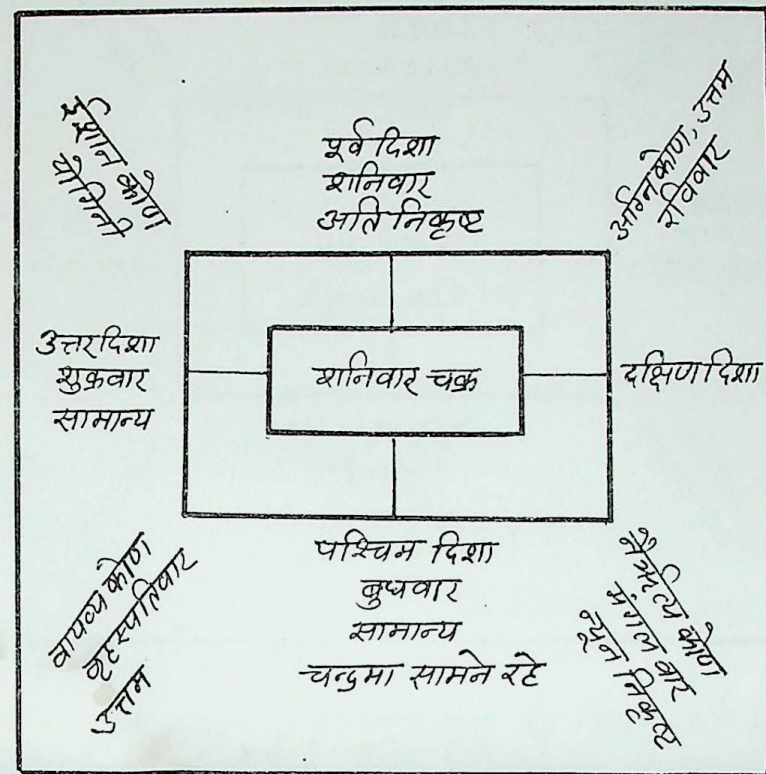 ईशान कोण
योगिनी
पूर्व दिशा
शनिवार
अति निकृष्ट
अग्नि कोण, उत्तम
रविवार
उत्तर दिशा
शुक्रवार
सामान्य
शनिवार चक्र
दक्षिण दिशा
वायव्य कोण
वृहस्पतिवार
उत्तम
पश्चिम दिशा
बुधवार
सामान्य
चन्द्रमा सामने रहे
नैर्ऋत्य कोण
मंगल वार
न्यून निकृष्ट